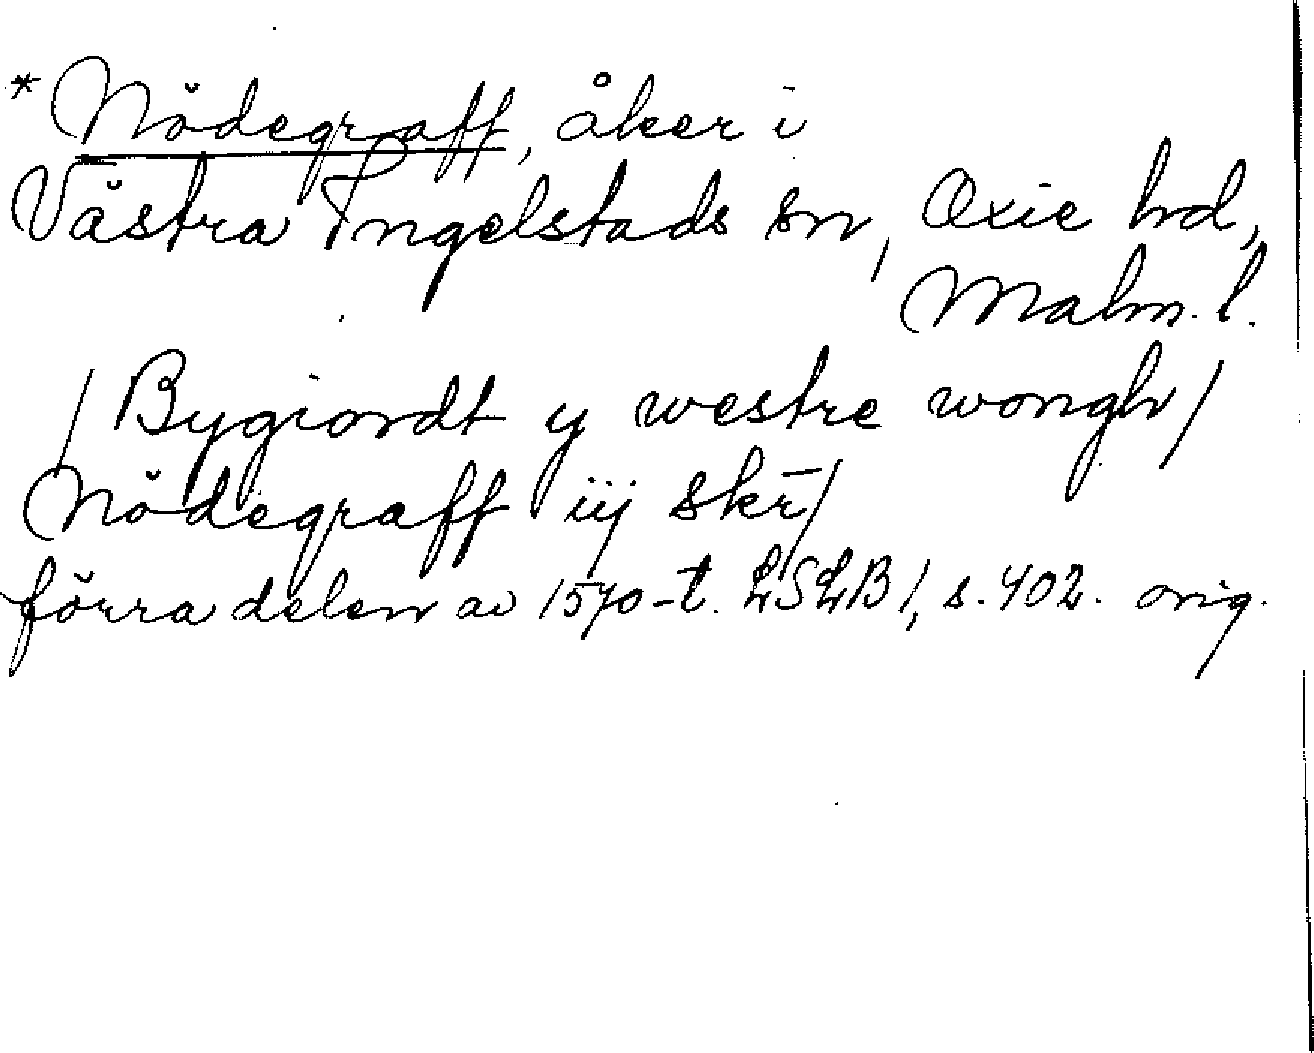 * Nödegraff, åker i
Västra Ingelstads sn, Oxie hd,
Malm. l.
/ Bygiordt y westre wongh /
Nödegraff iij skr̄ /
förra delen av 1570-t. LSLB 1, s. 402. orig.